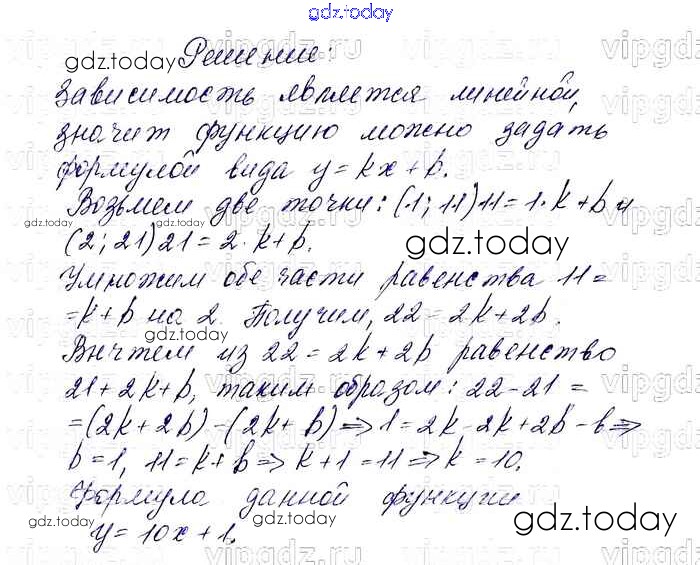 gdz.today
Решение:
зависимость является линейной,
значит функцию можно задать
формулой вида y = kx + b.
Возьмем две точки: (1; 11) 11 = 1 · k + b и
(2; 21) 21 = 2 · k + b.
Умножим обе части равенства 11 =
= k + b на 2. Получим, 22 = 2k + 2b.
Вычтем из 22 = 2k + 2b равенство
21 + 2k + b, таким образом: 22 - 21 =
= (2k + 2b) - (2k + b) ⇒ 1 = 2k - 2k + 2b - b ⇒
b = 1, 11 = k + b ⇒ k + 1 = 11 ⇒ k = 10.
Формула данной функции
y = 10x + 1.
gdz.today
gdz.today
gdz.today
gdz.today
gdz.today
gdz.today
gdz.today
gdz.today
gdz.today
gdz.today
vipgdz.ru